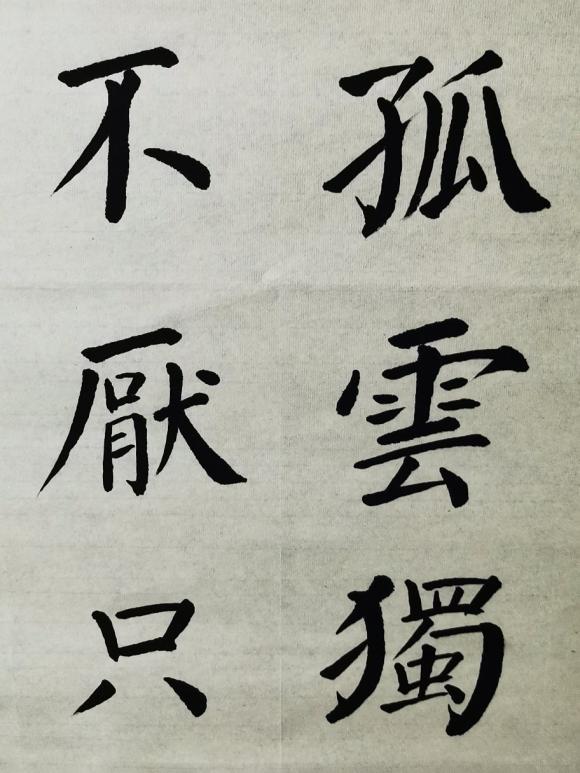 孤雲獨
不厭只